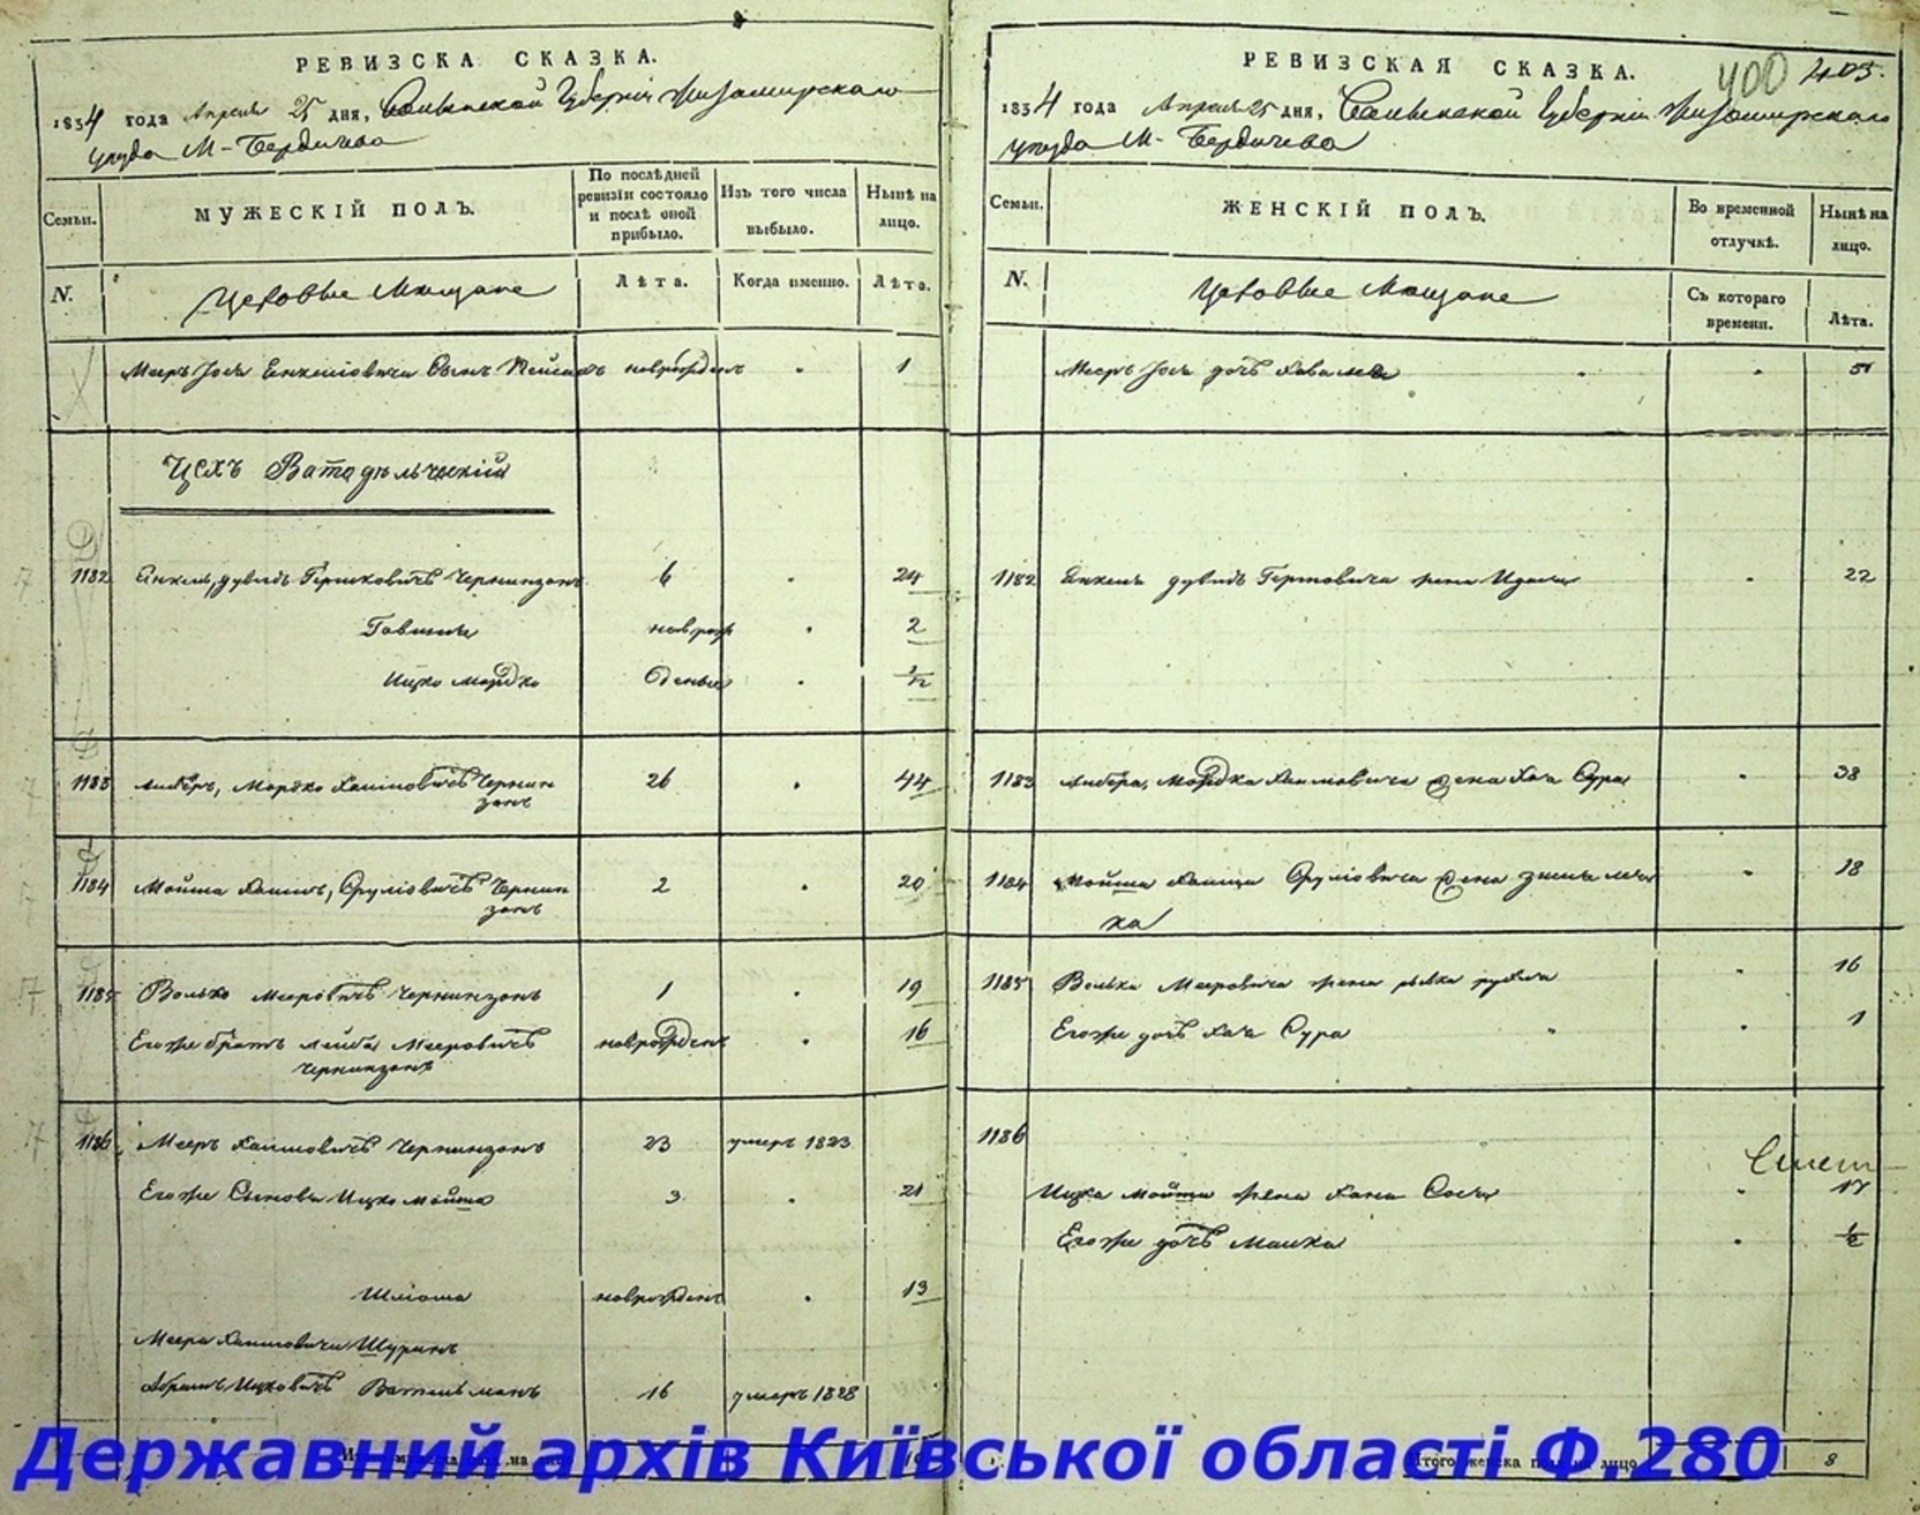 РЕВИЗСКА СКАЗКА.
1834 года Апреля 25 дня, Волынской Губерніи Житомирскаго
уезда М- Бердичева
Семьи.
МУЖЕСКІЙ ПОЛЪ.
По послѣдней ревизіи состояло и послѣ оной прибыло.
Изъ того числа выбыло.
Нынѣ на лицо.
N.
Цеховые Мещане
Лѣта.
Когда именно.
Лѣта.
Мееръ Іось Енкелiовича Сынъ новрожденъ 1
Цехъ Ватодѣльческій
1182 Енкель, дувидъ Гершковичъ Чернинзонъ 6 24
новрож 2
Ицко Мордко 1/2
1183 Мордко Хаимовичъ Чернин 26 44
зонъ
1184 Мойша Хаимъ, Сруліовичъ Чернин 2 20
зонъ
1185 Волько Мееровичъ Чернинзонъ 1 19
Егоже братъ Лейба Мееровичъ новрожденъ 16
Чернинзонъ
1186 Мееръ Хаимовичъ Чернинзонъ 23 умеръ 1823
Егоже Сыновья Ицко Мойша 3 21
Шліома новрожденъ 13
Меера Хаимовича Шуринъ
Абрамъ Ицковичъ Вательманъ 16 умеръ 1828
РЕВИЗСКАЯ СКАЗКА.
400 405.
1834 года Апреля 25 дня, Волынской Губерніи Житомирскаго
уезда М- Бердичева
Семьи.
ЖЕНСКІЙ ПОЛЪ.
Во временной отлучкѣ.
Нынѣ на лицо.
N.
Цеховые Мещане
Съ котораго времени.
Лѣта.
Мееръ Іося дочь 5
1182 Енкеля дувидъ жена 22
1183 Мордка Хаимовича жена Хая Сура 38
1184 Мойша Хаима Сруліовича жена 18
ка
1185 Волька Мееровича жена 16
Егоже дочь Хая Сура 1
1186
Ицка Мойша жена Хана 17
Егоже дочь Малка 1/2
Итого женска пола на лицо 8
Державний архів Київської області Ф.280